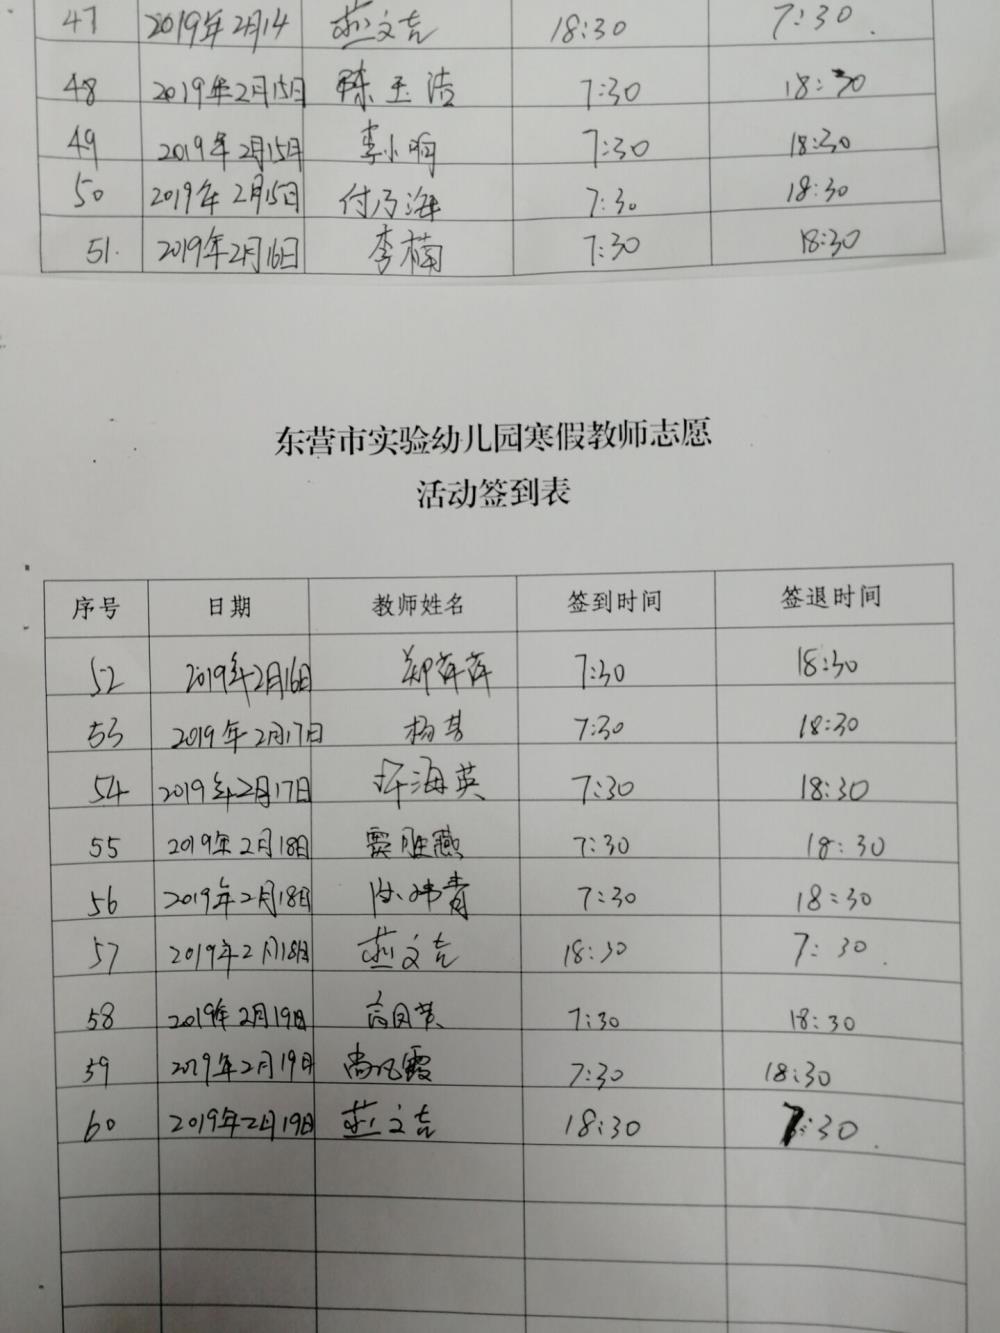 47 2019年2月14 燕文吉 18:30 7:30.
48 2019年2月15日 陈玉洁 7:30 18:30
49 2019年2月15日 李小响 7:30 18:30
50 2019年2月15日 付乃海 7:30 18:30
51. 2019年2月16日 李楠 7:30 18:30
东营市实验幼儿园寒假教师志愿
活动签到表
序号 日期 教师姓名 签到时间 签退时间
52 2019年2月16日 郑萍萍 7:30 18:30
53 2019年2月17日 7:30 18:30
54 2019年2月17日 海英 7:30 18:30
55 2019年2月18日 燕 7:30 18:30
56 2019年2月18日 青 7:30 18:30
57 2019年2月18日 燕文吉 18:30 7:30.
58 2019年2月19日 7:30 18:30
59 2019年2月19日 霞 7:30 18:30
60 2019年2月19日 燕文吉 18:30 7:30.